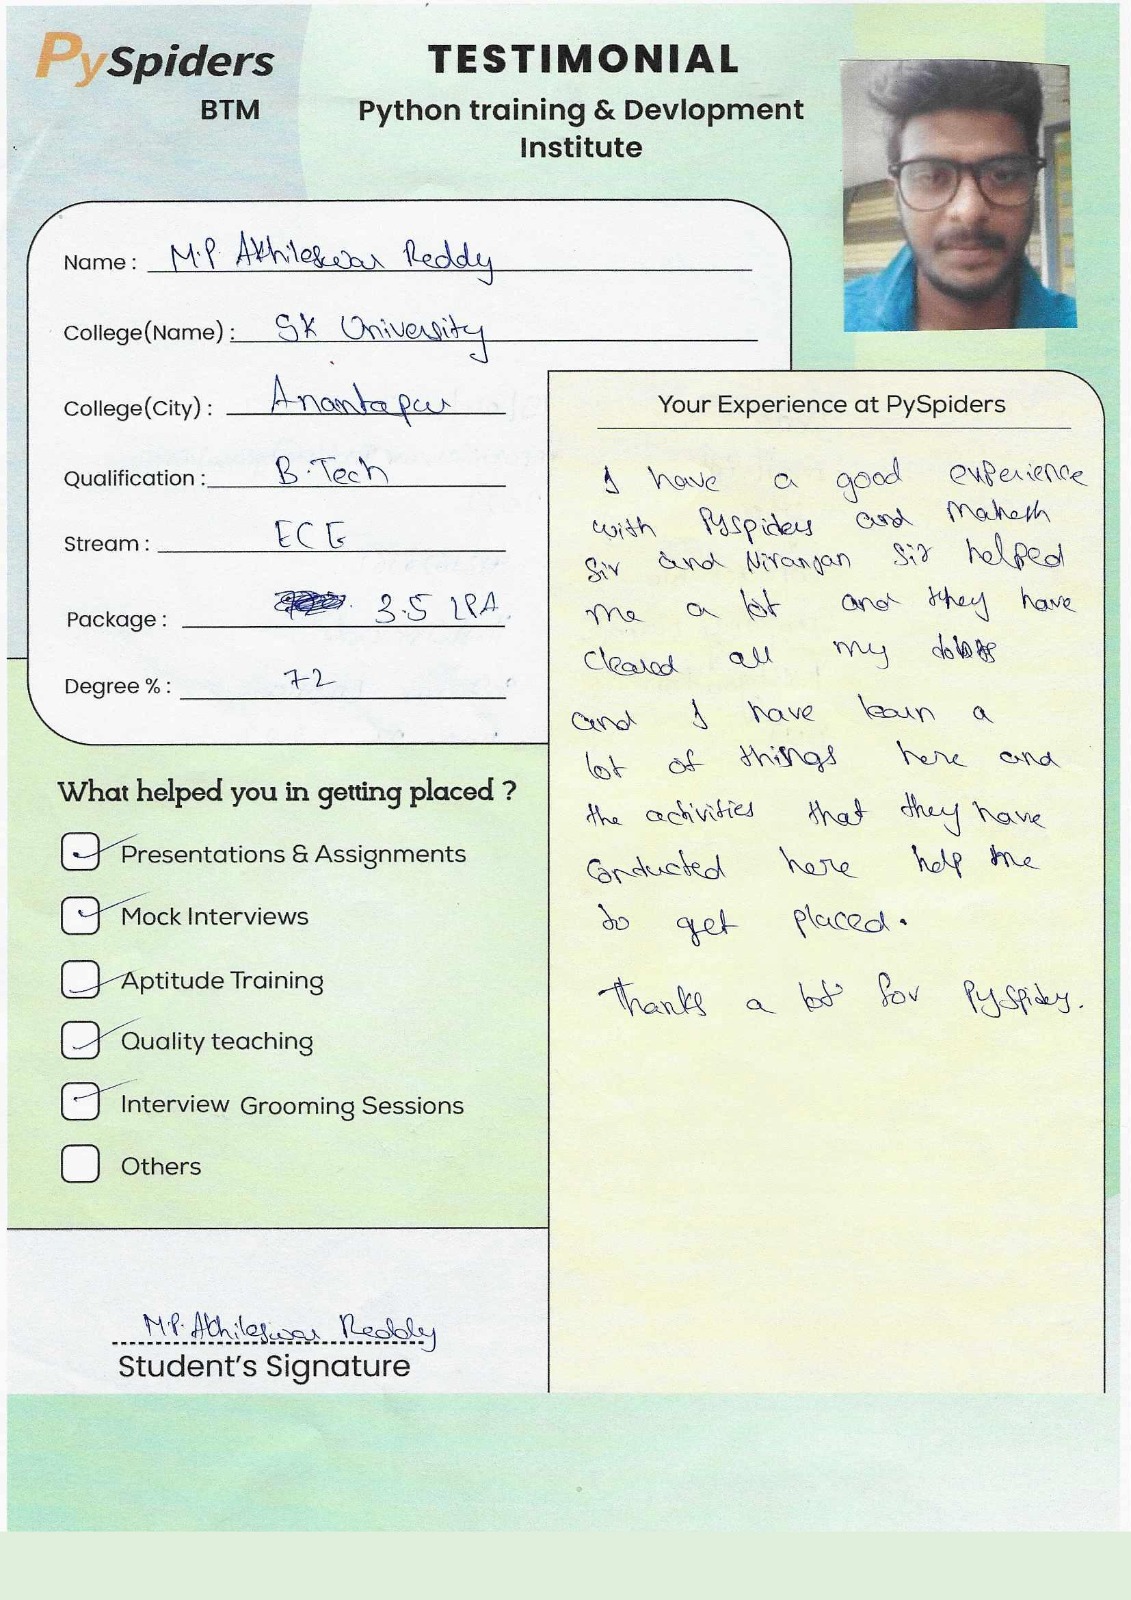 PySpiders
BTM
TESTIMONIAL
Python training & Devlopment
Institute
Name : M.P. Akhileswar Reddy
College(Name) : SK University
College(City) : Anantapur
Qualification : B.Tech
Stream : ECE
Package : 3.5 LPA
Degree % : 72
What helped you in getting placed ?
Presentations & Assignments
Mock Interviews
Aptitude Training
Quality teaching
Interview Grooming Sessions
Others
M.P. Akhileswar Reddy
Student's Signature
Your Experience at PySpiders
I have a good experience
with Pyspiders and Mahesh
Sir and Niranjan Sir helped
me a lot and they have
cleared all my
and I have learn a
lot of things here and
the activities that they have
conducted here help me
to get placed.
Thanks a lot for PySpiders.